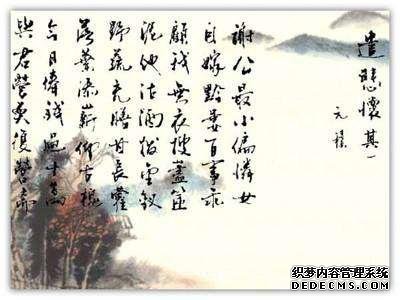 遣悲懷其一
元稹
謝公最小偏憐女
自嫁黔婁百事乖
顧我無衣搜藎篋
泥他沽酒拔金釵
野蔬充膳甘長藿
落葉添薪仰古槐
今日俸錢過十萬
與君營奠復營齋
织梦内容管理系统
DEDECMS.COM